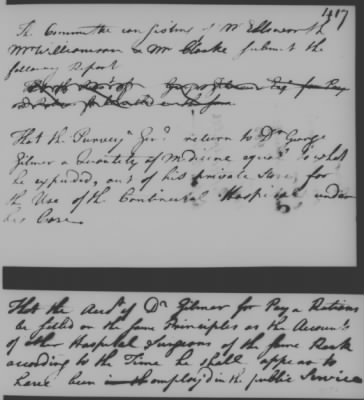 147
The Committee consisting of Mr Ellsworth
Mr Williamson & Mr Clarke submit the
following Report
That the Purveyr Genl return to Dr George
Gilmer a Quantity of Medicine equal to what
he expended, out of his private Store, for
the Use of the Continental Hospital under
his Care
That the Acct of Dr Gilmer for Pay & Rations
be settled on the same Principles as the Accounts
of other Hospital Surgeons of the same Rank
according to the Time he shall appear to
have been employ'd in the public Service